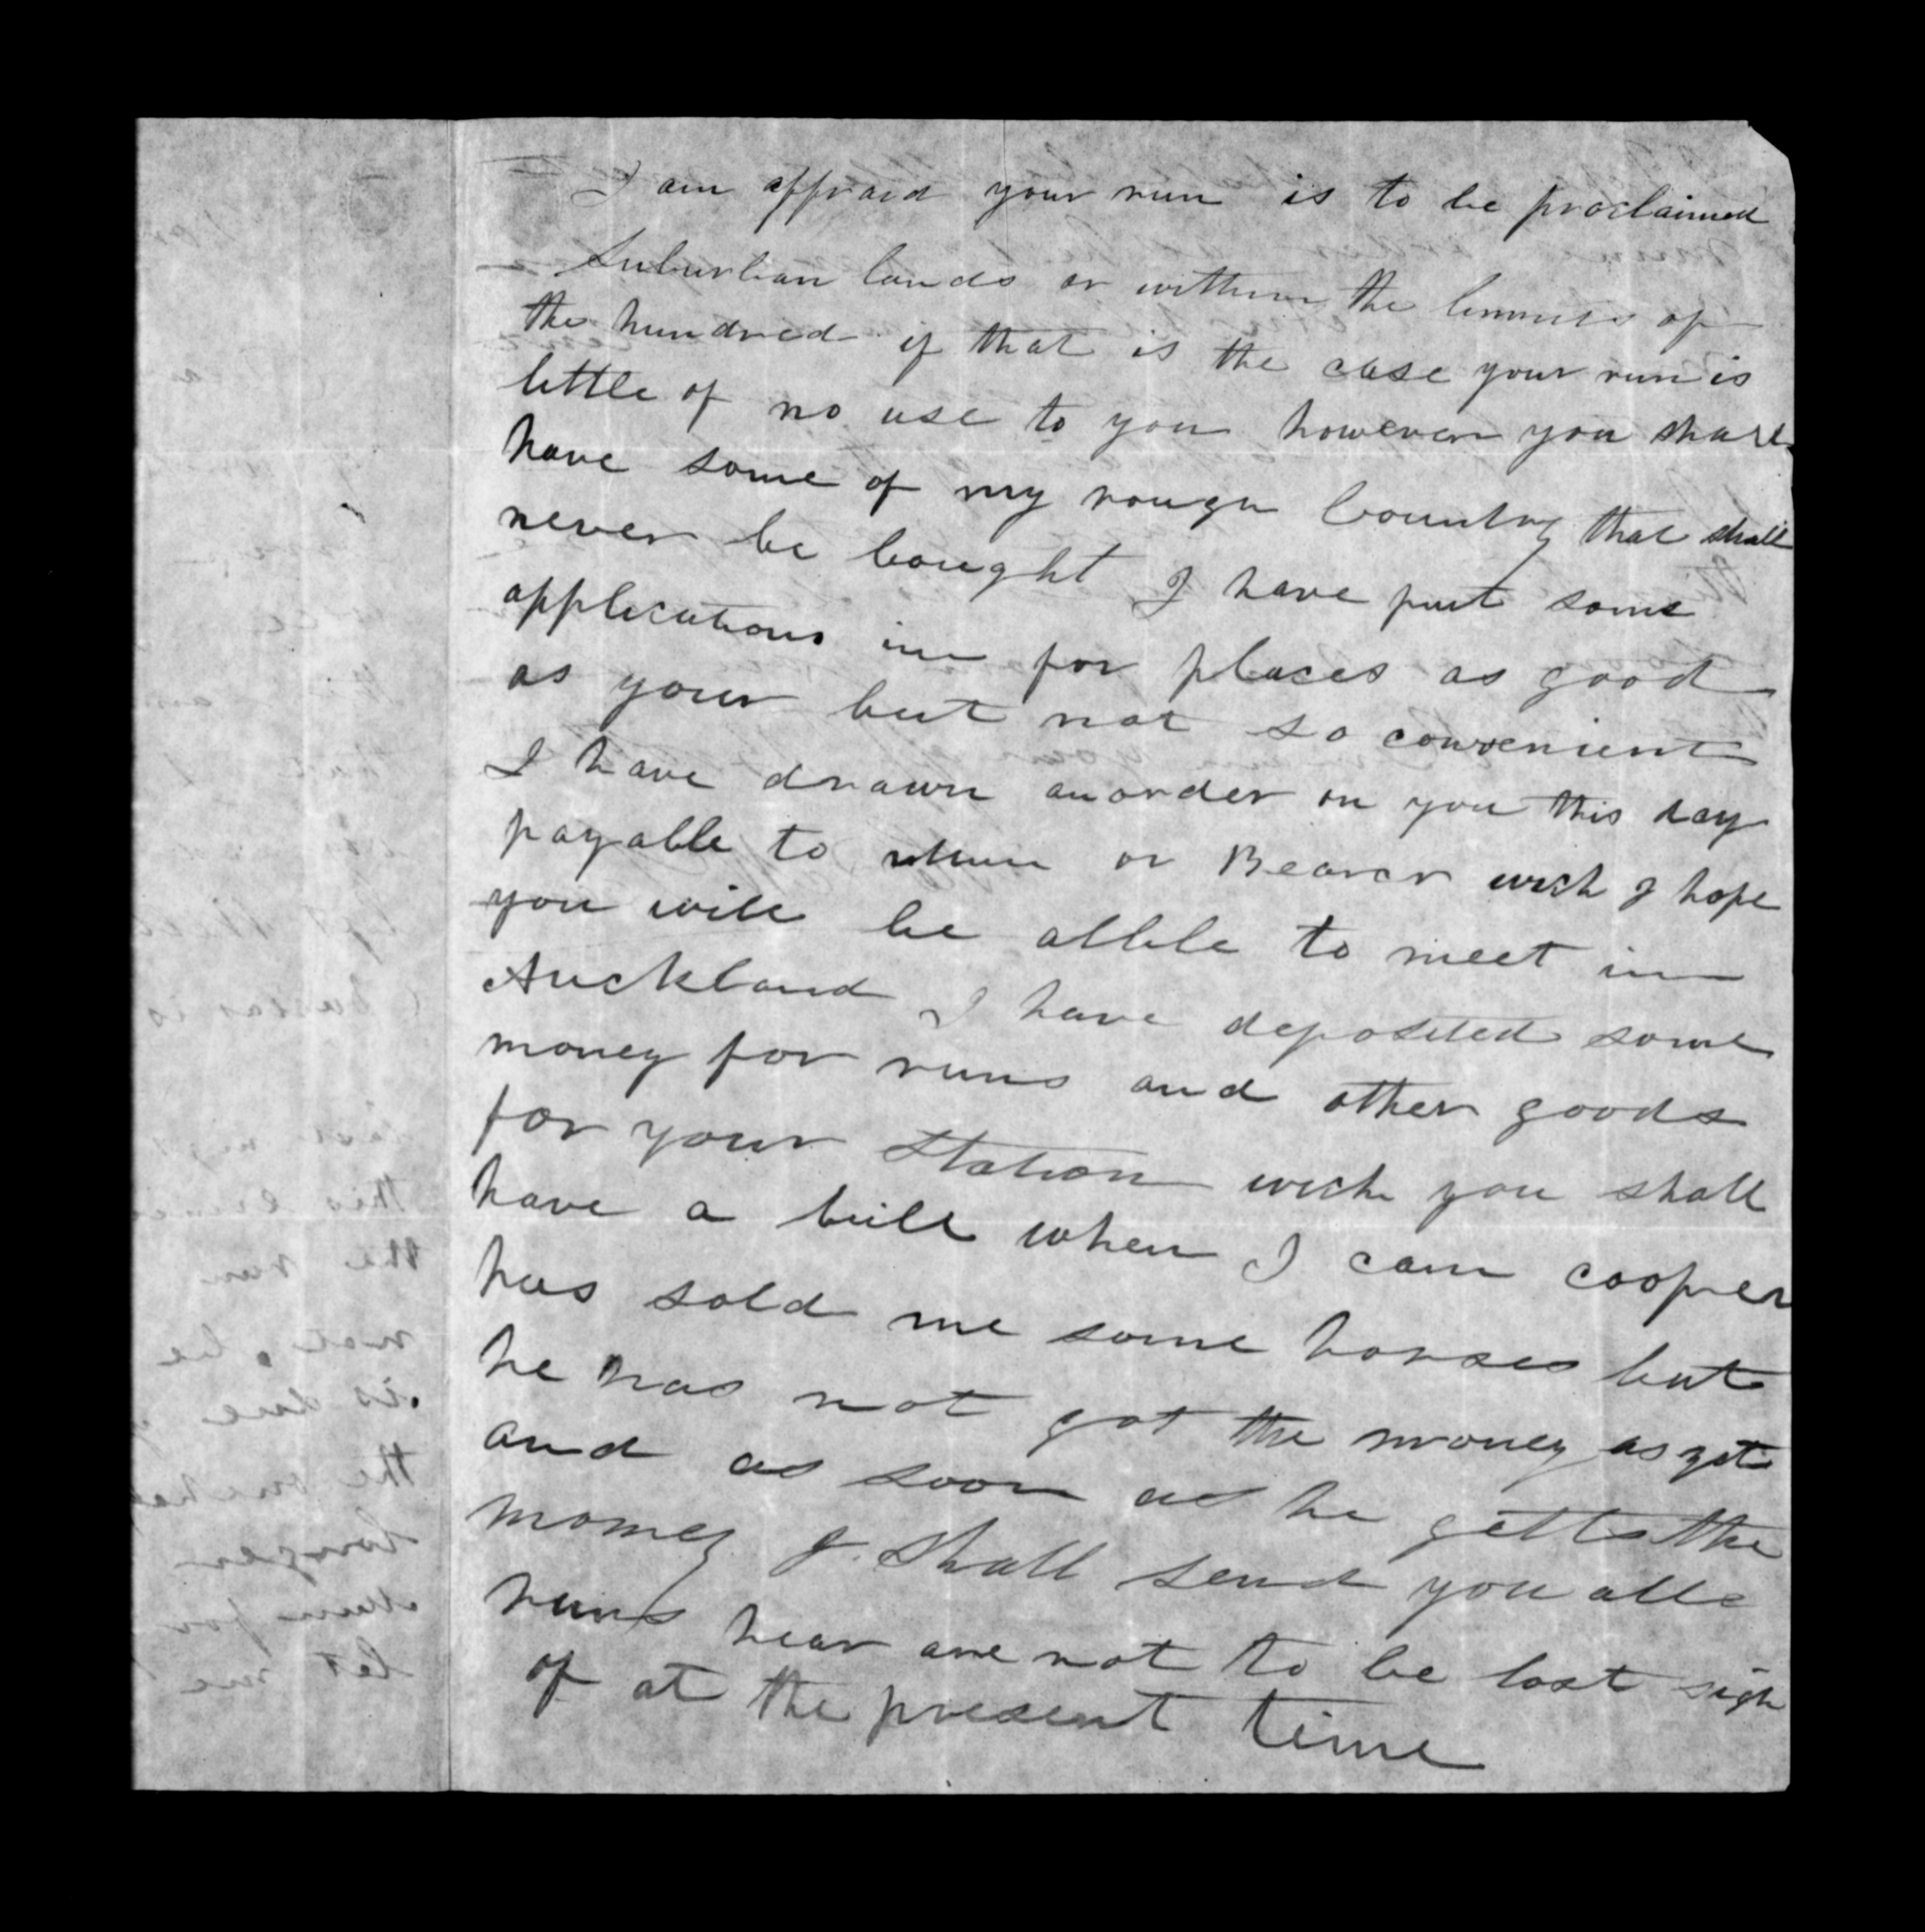 I am affraid your run is to be proclaimed
Suburban lands or within the limmits of
the hundred if that is the case your run is
little of no use to you however you shall
have some of my rough Country that shall
never be bought I have put some
applications in for places as good
as your but not so convenient
I have drawn an order on you this day
payable to or Bearer wich I hope
you will be allble to meet in
Auckland I have deposited some
money for runs and other goods
for your Station wich you shall
have a bill when I can cooper
has sold me some horses but
he has not got the money as yet
and as soon as he getts the
money I shall send you alls
runs hear are not to be lost sigh
of at the present time